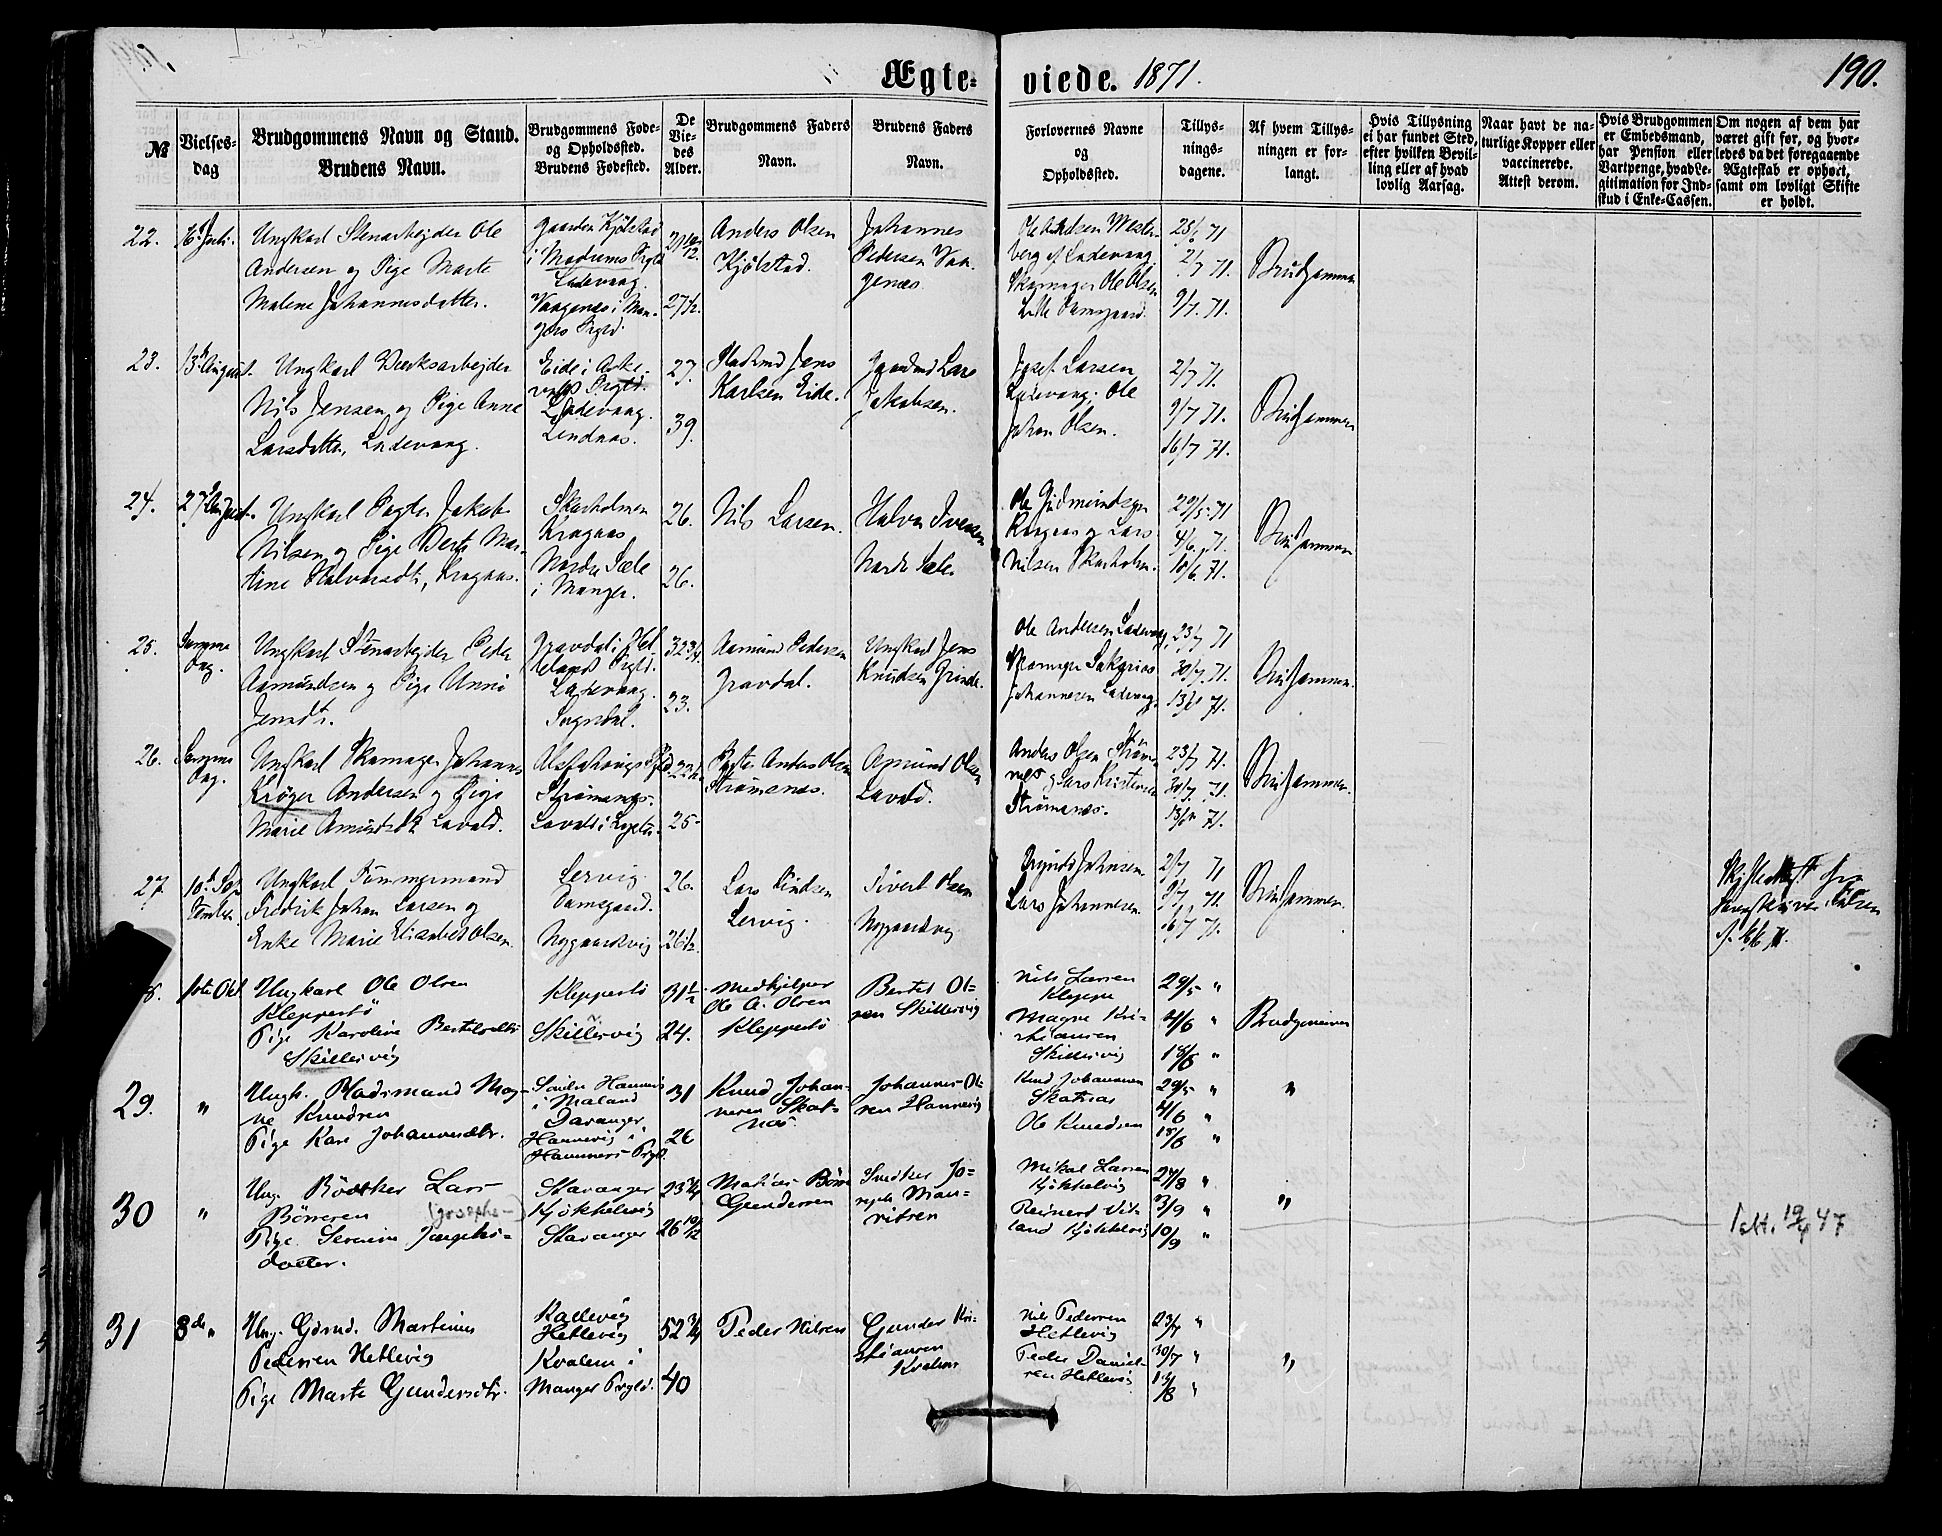 Ægte-
viede. 1871.
190.
№
Vielses-
dag
Brudgommens Navn og Stand.
Brudens Navn.
Brudgommens Føde-
og Opholdssted.
Brudens Fødested.
De
Vie-
des
Alder.
Brudgommens Faders
Navn.
Brudens Faders
Navn.
Forlovernes Navne
og
Opholdssted.
Tillys-
nings-
dagene.
Af hvem Tillys-
ningen er for-
langt.
Hvis Tillysning
ei har fundet Sted,
efter hvilken Bevil-
ling eller af hvad
lovlig Aarsag.
Naar havt de na-
turlige Kopper eller
vaccinerede.
Attest derom.
Hvis Brudgommen
er Embedsmand,
har Pension eller
Vartpenge, hvad Le-
gitimation for Ind-
skud i Enke-Cassen.
Om nogen af dem har
været gift før, og hvor-
ledes da det foregaaende
Ægteskab er ophørt,
samt om lovligt Skifte
er holdt.
22.
16 Juli.
Ungkarl Stenarbejder Ole
Andersen og Pige Marte
Malene Johannesdatter.
Gaarden Kjølstad
i Modums Prgld
Ladevaag.
Vaagenes i Man-
gers Prgld.
27½.
Anders Olsen
Kjølstad.
Johannes
Pedersen Vaa-
genæs.
Ole Andersen Wester-
berg af Ladevaag
Skomager Ole Olsen
Lille Damsgaard.
2/7 71.
9/7. 71.
Brudgommen
23.
13 August.
Ungkarl Værksarbejder
Nils Jensen og Pige Anne
Larsdatter, Ladevaag.
Eide i Aske-
volds Prgld.
Ladevaag.
Lindaas.
27.
39.
Jens
Karlsen Eide.
Gaardmd Lars
Jakobsen.
Josef Larsen
Ladevaag; Ole
Johan Olsen.
2/7 71.
9/7 71.
16/7 71.
Brudgommen
24.
27 August.
Ungkarl Jakob
Nilsen og Pige Berte Mar-
tine Halvorsdtr, Kragaas.
Skarholmen
Kragaas
Nordre Sæle
i Manger.
26.
26.
Nils Larsen.
Halvor Iversen
Nordre Sæle
Ole Gudmundsen
Kragaas og Lars
Nilsen Skarholm.
29/5 71
4/6. 71.
18/6. 71.
Brudgommen
25.
Samme
Dag.
Ungkarl Stenarbejder Peder
Aamundsen og Pige Anne
Jensdtr.
Gravdal i
Prgld.
Ladevaag.
Sogndal.
32¾.
23.
Aamund Pedersen
Gravdal.
Ungkarl Jens
Knudsen Grinde.
Ole Andersen Ladevaag,
Skomager Sakarias
Johannesen Ladevaag.
23/7 71
30/7. 71.
13/8 71.
Brudgommen.
26.
Samme
Dag.
Ungkarl Skomager Johannes
Krøger Andersen og Pige
Marie Amundsdtr Lavold.
Strømsnæs.
25
Anders Olsen
Strømsnæs.
Amund Olsen
Lavold.
Anders Olsen Strøms-
næs og Lars Kristensen
Strømsnæs.
23/7 71.
30/7 71.
13/8 71.
Brudgommen.
27
10d Sep-
tember
Ungkarl Tømmermand
Fredrik Johan Larsen og
Enke Marie Elisabet Olsen.
Lervig
Damsgaard.
Nygaardsvig
26.
26½.
Lars
Lervig.
Sivert Olsen
Nygaardsvig
Johnsen.
Lars Johannesen.
2/7 71
9/7 71.
16/7 71.
Brudgommen.
Skifteattest fra
8.
1ste Okt.
Ungkarl Ole Olsen
Kleppestö
Pige Karoline Bertelsdtr
Skillesvig
Kleppestö
Skillesvig
31½
24.
Medhjelper
Ole A. Olsen
Kleppestö
Bertel Ol-
sen Skillesvig
Nils Larsen
Kleppe
Magne Kri-
stiansen
Skillesvig
29/5 "
4/6 "
18/6 "
Brudgommen
29.
"
Ungk. Pladsmand Mog-
ne Knudsen
Pige Kari Johannesdtr.
i Maland
Davanger
Hannevig i
Hammers Prgld.
31
26
Knud Johan-
nesen Skat-
næs
Johannes Ol-
sen Hannevig
Knud Johannesen
Skatnæs
Ole Knudsen
29/5 "
4/6 "
18/6 "
"
30
"
Ung. Bödtker Lars
Börresen
(Josephs-)
Pige Serine Josephs-
datter.
Stavanger
Kjökkelvig
Stavanger
23¾
26 10/12
Matias Börre
Gundersen
Snedker Jo-
seph Mau-
ritsen
Mikal Larsen
Kjökkelvig
Reinert Vil-
land Kjökkelvig
27/8 "
3/9 "
10/9 "
"
1 att. 19/4 47
31
8de "
Ung. Gdmd. Martinus
Pedersen Hetlevig
Pige Marta Gundersdtr.
Kollevåg
Hetlevig
Kvalem i
Manger Prgld.
52¾
40
Peder Nilsen
Gunder Kri-
stiansen
Kvalem
Nils Pedersen
Hetlevig
Peder Daniel-
sen Hetlevig
23/7 "
30/7 "
13/8 "
"